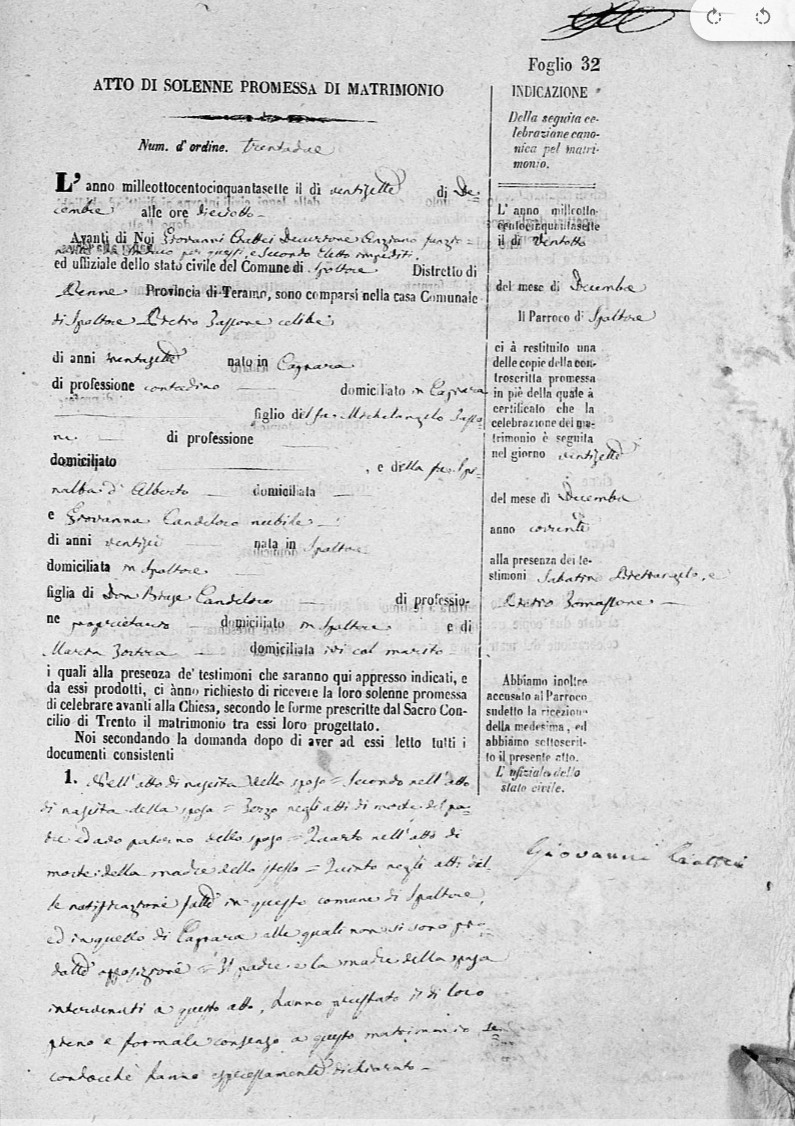 Foglio 32
ATTO DI SOLENNE PROMESSA DI MATRIMONIO
Num. d' ordine. trentadue
L' anno milleottocentocinquantasette il dì ventisette di De=
cembre alle ore dieciotto
Avanti di Noi Giovanni Decurione Anziano funzio=
per e Secondo Eletto impediti,
ed uffiziale dello stato civile del Comune di Spoltore Distretto di
Penne Provincia di Teramo, sono comparsi nella casa Comunale
di Spoltore Pietro celibe
di anni nato in Caprara
di professione contadino domiciliato in Caprara
figlio del fu Michelangelo
di professione
domiciliato , e della fu
d' Alberto domiciliata
e Giovanna Candeloro nubile
di anni nata in Spoltore
domiciliata in Spoltore
figlia di Don Candeloro di professio-
ne proprietario domiciliato in Spoltore e di
Marta domiciliata ivi col marito
i quali alla presenza de' testimoni che saranno qui appresso indicati, e
da essi prodotti, ci ànno richiesto di ricevere la loro solenne promessa
di celebrare avanti alla Chiesa, secondo le forme prescritte dal Sacro Con-
cilio di Trento il matrimonio tra essi loro progettato.
Noi secondando la domanda dopo di aver ad essi letto tutti i
documenti consistenti
1. Nell'atto di nascita dello sposo = Secondo nell'atto
di nascita della sposa = Terzo negli atti di morte del pa=
dre ed avo paterno dello sposo = Quarto nell'atto di
morte della madre dello stesso = Quinto negli atti del
le notificazioni fatte in questo comune di Spoltore,
ed in quello di Caprara alle quali non si sono pro=
dotte opposizioni = Il padre e la madre della sposa
intervenuti a questo atto, hanno prestato il di loro
pieno e formale consenso a questo matrimonio se=
condocchè hanno espressamente dichiarato
INDICAZIONE
Della seguita ce-
lebrazione cano-
nica pel matri-
monio.
L' anno milleotto-
centocinquantasette
il dì ventotto
del mese di Decembre
Il Parroco di Spoltore
ci à restituito una
delle copie della con-
troscritta promessa
in piè della quale à
certificato che la
celebrazione del ma-
trimonio è seguita
nel giorno ventisette
del mese di Decembre
anno corrente
alla presenza de' te-
stimoni Sabatino e
Pietro
Abbiamo inoltre
accusato al Parroco
sudetto la ricezione
della medesima, ed
abbiamo sottoscrit-
to il presente atto.
L' ufiziale dello
stato civile.
Giovanni